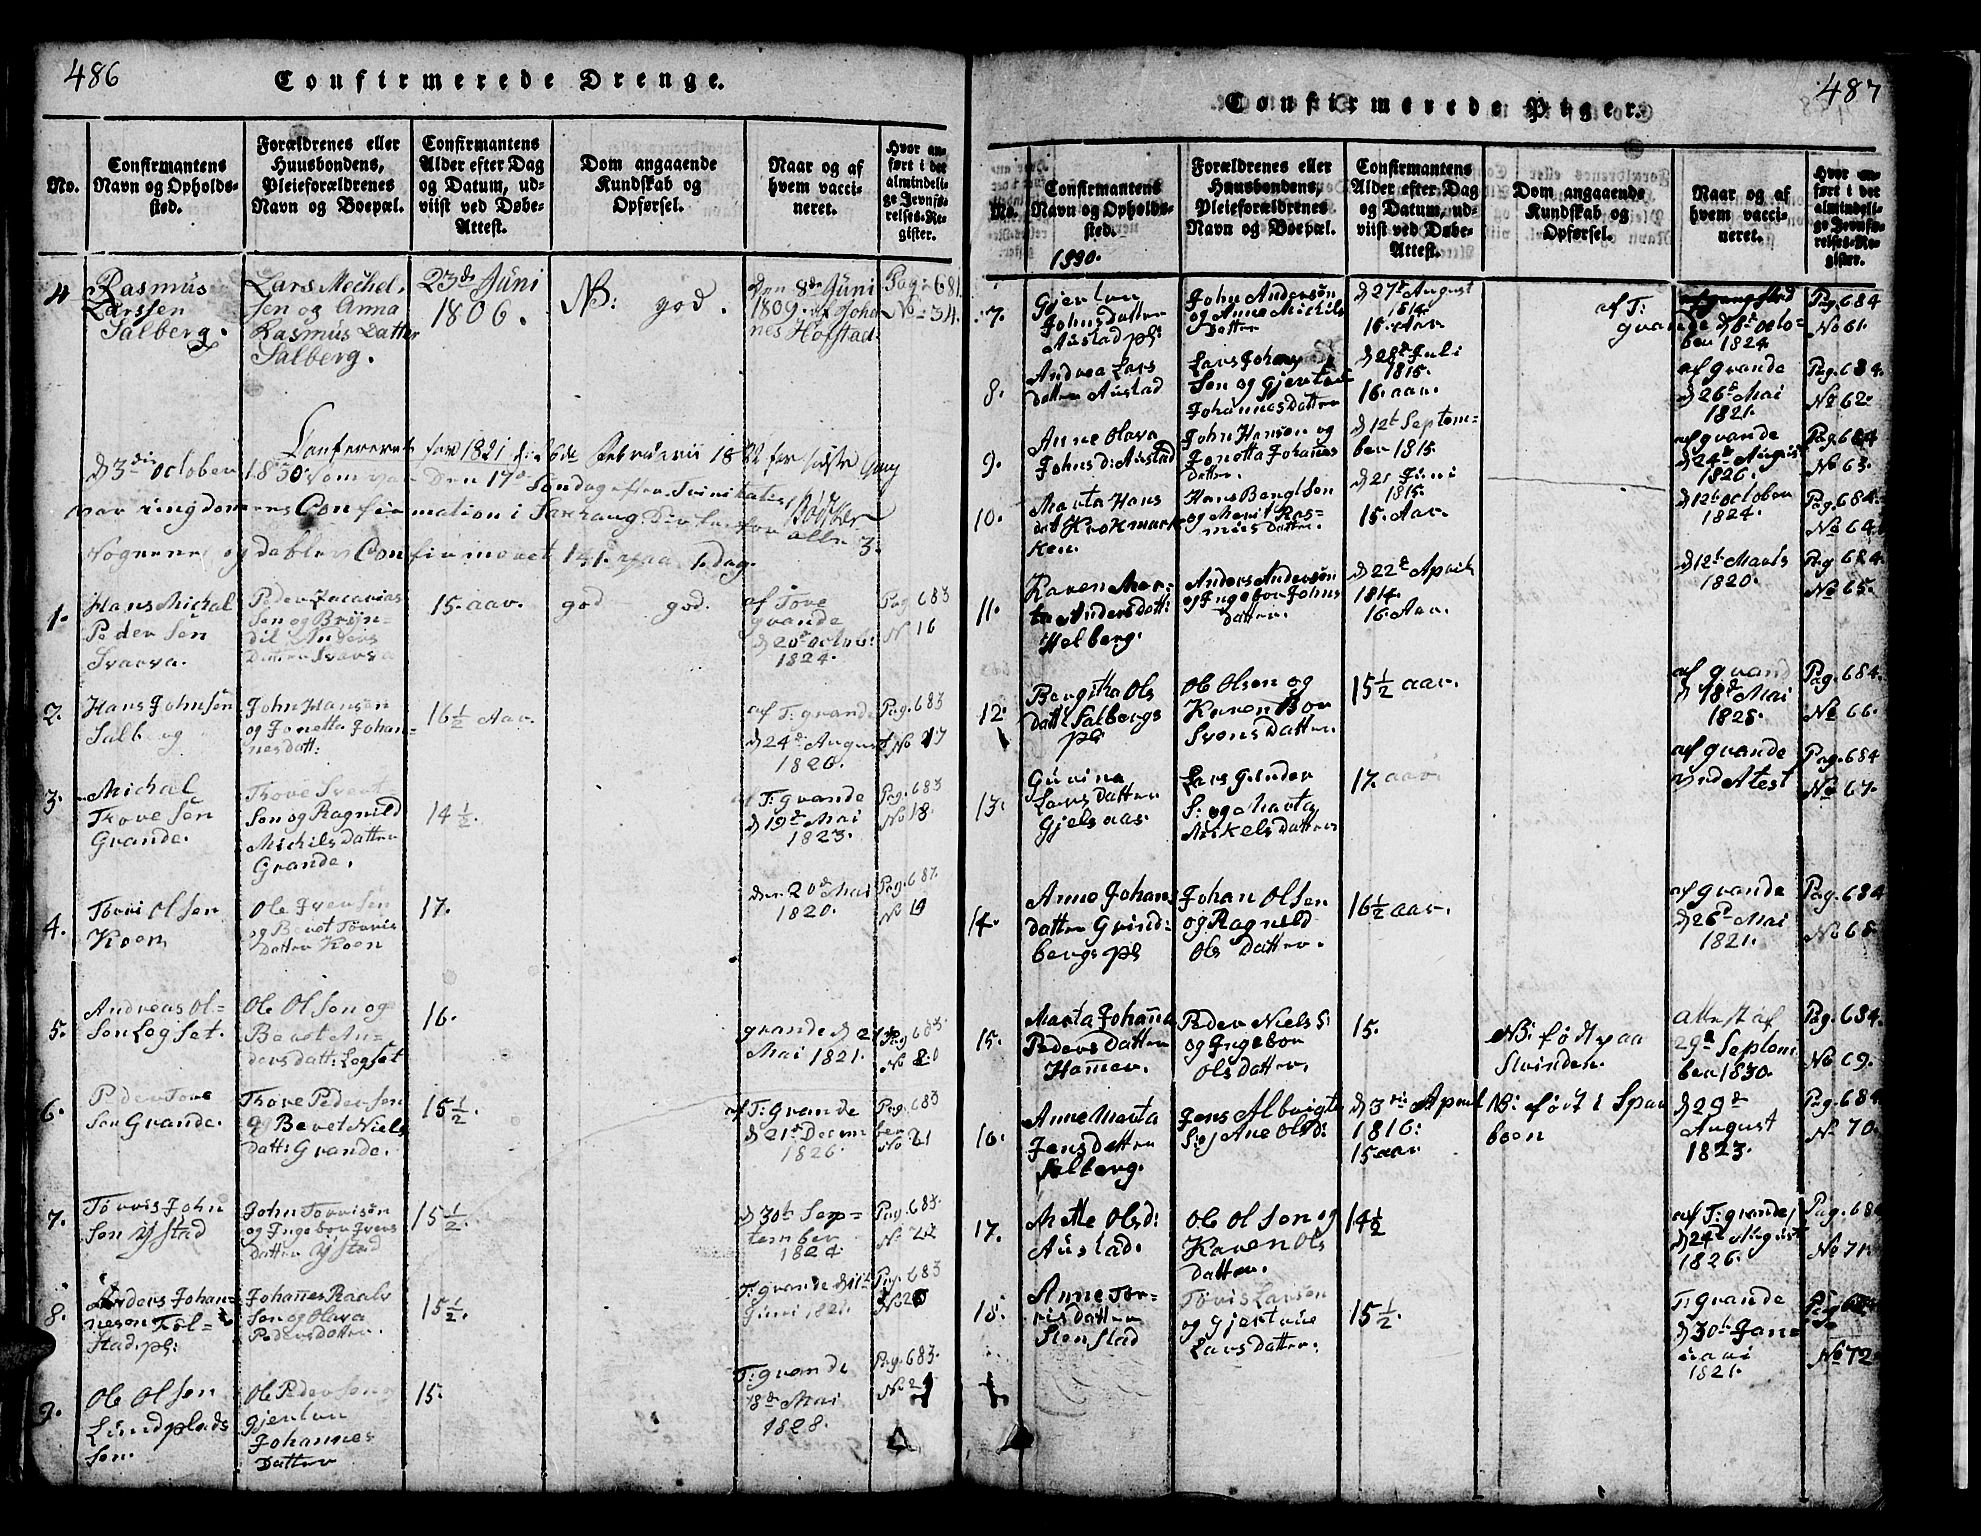 486
Confirmerede Drenge.
No.
Confirmantens
Navn og Opholds-
sted.
Forældrenes eller
Huusbondens,
Pleieforældrenes
Navn og Boepæl.
Confirmantens
Alder efter Dag
og Datum, ud-
viist ved Døbe-
Attest.
Dom angaaende
Kundskab og
Opførsel.
Naar og af
hvem vacci-
neret.
Hvor an-
ført i det
almindeli-
ge Jevnfø-
relses-Re-
gister.
4
Rasmus
Larssen
Salberg.
Lars Mechel,
sen og Anna
Rasmus Datter
Salberg.
23de Juni
1806.
NB: god.
Den 8de Juni
1809. af Joha
nes Hofstad.
Pag: 681.
No 34.
Confereret for 1821
d 3die October 1830 som var Den 17de Søndag efter Trinitatis
var ungdomens Confirmation i
Sognene, og dablev Confirmeret 131. paa 1 Dag.
1.
Hans Michal
Peder Sen
Svarva.
Peder Zacarias
Sen og Brÿn-
dil Anders
Datter Svarva
15. aar.
god god.
af Tove
grande
d 20de octob:
1824.
Pag. 683
N 16
2.
Hans Johnsen
Salb og
John Hansen
og Jonetta Johan-
nesdatt:
16½ Aar.
af T: grande
d 24de August
1820.
Pag. 683
No 17
3.
Michal
Tove Sen
Grande.
Thove Svert
Sen og Ragnild
Michils Datter
Grande.
14½.
af T: grande
d 19de Mai
1823.
Pag. 683
No 18.
4.
Torris Olsen
Koen
Ole Iversen
og Beret Torris
Datter Koen
17.
den 20de Mai
1820.
Pag. 683.
No 19
5.
Andreas Ol-
Sen Logset.
Ole Olsen og
Beret An-
dersdatt: Logset
16.
grande d 21de
Mai 1821.
Pag 683.
No 20
6.
Peder Tove
Sen Grande.
Thove Pedersen
og Beret Niels
datt: Grande.
15½.
af T: Grande
d 21de Decem
ber
1826.
Pag. 683
No 21
7.
Torris John
Sen Ystad
John Torrisen
og Ingebor Ivers
Datter Ystad
15½.
d 30te Sep-
tember
1824.
Pag. 683.
No 22
8.
Anders Johan-
nesen Føl-
Stad. pl:
Johannes Raals
Sen og Olava
Pedersdatter.
15½.
T: grande d 11te
Juni 1821.
Pag. 683
No 23
9.
Ole Olsen
Lundplads
Sen.
Ole Pedersen og
Gjertru
Johannes
Datter
15.
T: grande
18de Mai
1828.
Pag. 683.
No 24
487
Confirmerede Piger.
No.
Confirmantens
Navn og Opholds-
sted.
1830.
Forældrenes eller
Huusbondens,
Pleieforældrenes
Navn og Boepæl.
Confirmantens
Alder efter Dag
og Datum, ud-
viist ved Døbe-
Attest.
Dom angaaende
Kundskab og
Opførsel.
Naar og af
hvem vacci-
neret.
Hvor an-
ført i det
almindeli-
ge Jevnfø-
relses-Re-
gister.
7.
Gjertru
Johnsdatter
Austad pl:
John Andersøn
og Anne Michils
Datter
d 27de August
1814
16. Aar
af T:
grande d 8de Octo-
ber 1824
Pag. 684
No 61.
8.
Andrea Lars
datter Austad
Lars Johan
Sen og Gjertru
Johannes Datter
d 28de Juli
1815.
16. aar.
af grande
d 26de Mai
1821.
Pag. 684.
No 62.
9.
Anne Olava
Johns d: Austad
John Hansen og
Jonetta Johanes
datter.
d 12te Septem-
ber 1815.
af grande
d 24de August
1826.
Pag. 684
No 63.
10.
Marta Hans
dat Krokmark
ken.
Hans Bengtsen
og Marit Ras-
mus datter.
d 21 Juni
1815.
15. Aar.
d 12te October
1824.
Pag. 684.
No 64.
11.
Karen Mar-
ta Andersdatt:
Holberg.
Anders Andersøn
og Ingebor Johns
datter.
d 22de April
1814.
16. Aar.
d 12te Marts
1820.
Pag 684.
No 65.
12.
Bergitha Ols
datt: Salbergs
pl:
Ole Olsen og
Karen Bor
Svens Datter.
15½ aar.
af grand
d 18de Mai
1825.
Pag. 684.
No 66.
13.
Gurina
Lars Datter
Gjelsaas.
Lars Gunder
S: og Marta
Mikels Datter
17. aar.
af grande
ved Atest
Pag. 684
No 67.
14.
Anne Johans
datter Grind-
bergs pl:
Johan Olsen
og Ragnild
Ols Datter.
16½ aar.
af grande
d 26de Mai
1821.
Pag. 684
No 68.
15.
Marta Johanna
Peders Datter
Hamer.
Peder Niels S:
og Ingebor
Olsdatter.
15.
NB: født paa
Stvinden.
attest af
29de Septem
ber 1830.
Pag. 684.
No 69.
16.
Anne Marta
Jensdatter
Salberg.
Jens Albrigte
S: og Ane Olsd:
d 3die April
1816:
15 aar
NB: født i Spar
boen
d 29de
August
1823.
Pag. 684.
No 70.
17.
Mette Olsd:
Austad.
Ole Olsen og
Karen Ols
datter.
14½
af T: grande
d 24de August
1826.
Pag. 684
No 71.
18.
Anne Tor-
ris datter
Stenstad
Torris Larsen
og Gjertrue
Lars datter.
15½.
T: Grande
d 30te Janu
uari
1821.
No 72.